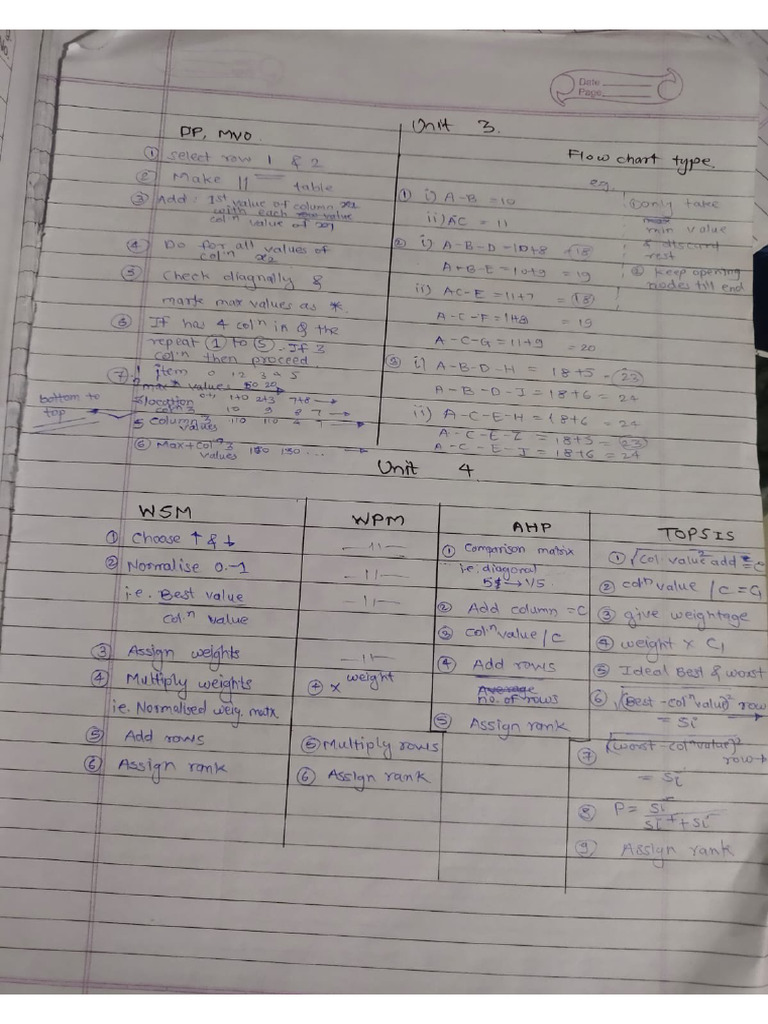 Date
Page
Unit 3.
DP, MVO.
① select row 1 & 2
② Make 11 table
③ Add: 1st value of column x2
with each value
colⁿ value of x1
④ Do for all values of
colⁿ x2
⑤ Check diagnally &
mark max values as *.
⑥ If has 4 colⁿ in Q the
repeat ① to ⑤. If 3
colⁿ then proceed.
⑦ item 0 1 2 3 4 5
max values
location
bottom to
top
⑤ Column 3
values
⑥ Max + Colⁿ 3
values
Flow chart type.
eg.
① i) A-B = 10
ii) AC = 11
② i) A-B-D = 10+8 = 18
A-B-E = 10+9 = 19
ii) AC-E = 11+7 = 18
A-C-F = 11+8 = 19
A-C-G = 11+9 = 20
③ i) A-B-D-H = 18+5 = 23
A-B-D-I = 18+6 = 24
ii) A-C-E-H = 18+6 = 24
A-C-E-I = 18+5 = 23
A-C-E-J = 18+6 = 24
① only take
min value
& discard
rest
② keep opening
nodes till end
Unit 4.
WSM
① Choose ↑ & ↓
② Normalise 0-1
i.e. Best value
colⁿ value
③ Assign weights
④ Multiply weights
i.e. Normalised weig. matx
⑤ Add rows
⑥ Assign rank
WPM
— 11 —
— 11 —
— 11 —
— 11 —
④ x weight
⑤ Multiply rows
⑥ Assign rank
AHP
① Comparison matrix
i.e. diagonal
5 → 1/5
② Add column = C
③ colⁿ value / C
④ Add rows
no. of rows
⑤ Assign rank
TOPSIS
① √col value² add = C
② colⁿ value / C = C₁
③ give weightage
④ weight x C₁
⑤ Ideal Best & worst
⑥ √(Best - colⁿ value)² row →
= Si
⑦ √(worst - colⁿ value)²
row →
= Si
⑧ P = Si⁻
Si⁺ + Si⁻
⑨ Assign rank